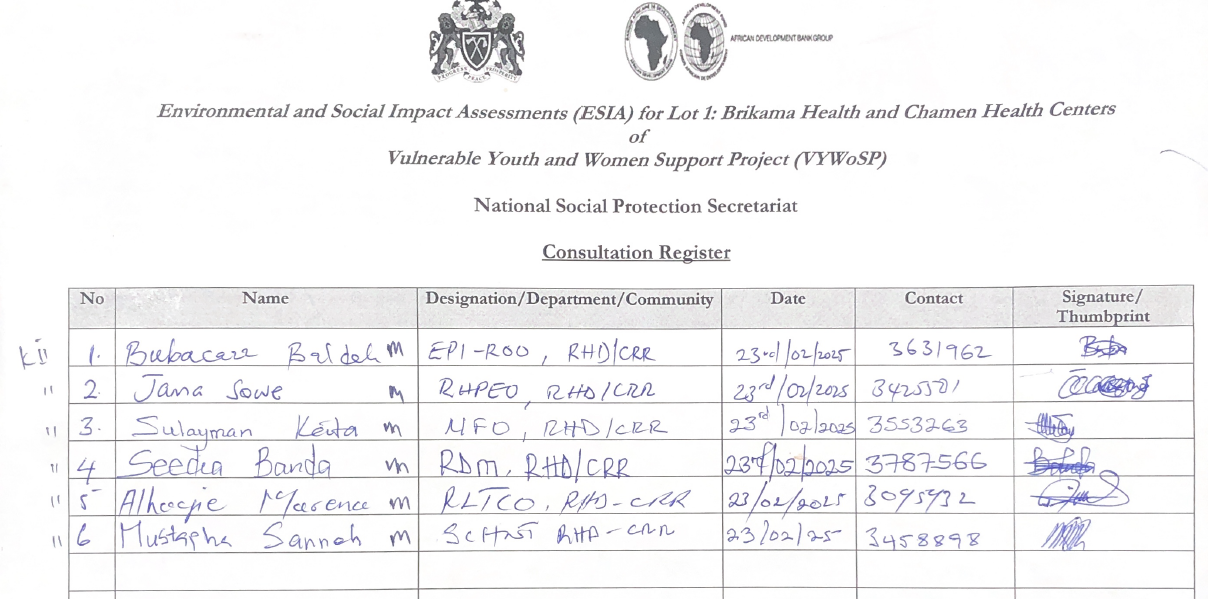 AFRICAN DEVELOPMENT BANK GROUP
Environmental and Social Impact Assessments (ESIA) for Lot 1: Brikama Health and Chamen Health Centers
of
Vulnerable Youth and Women Support Project (VYWoSP)
National Social Protection Secretariat
Consultation Register
No Name Designation/Department/Community Date Contact Signature/
Thumbprint
KII 1. Bubacarr Baldeh m EPI-ROO, RHD/CRR 23rd/02/2025 3631962
" 2. Jana Sowe m RHPEO, RHD/CRR 23rd/02/2025 3425501
" 3. Sulayman Keita m MFO, RHD/CRR 23rd/02/2025 3553263
" 4 Seedia Banda m RDM, RHD/CRR 23rd/02/2025 3787566
" 5 m RLTCO, RHD-CRR 23/02/2025 3095932
" 6 Mustapha Sanneh m RHD-CRR 23/02/25 3458898